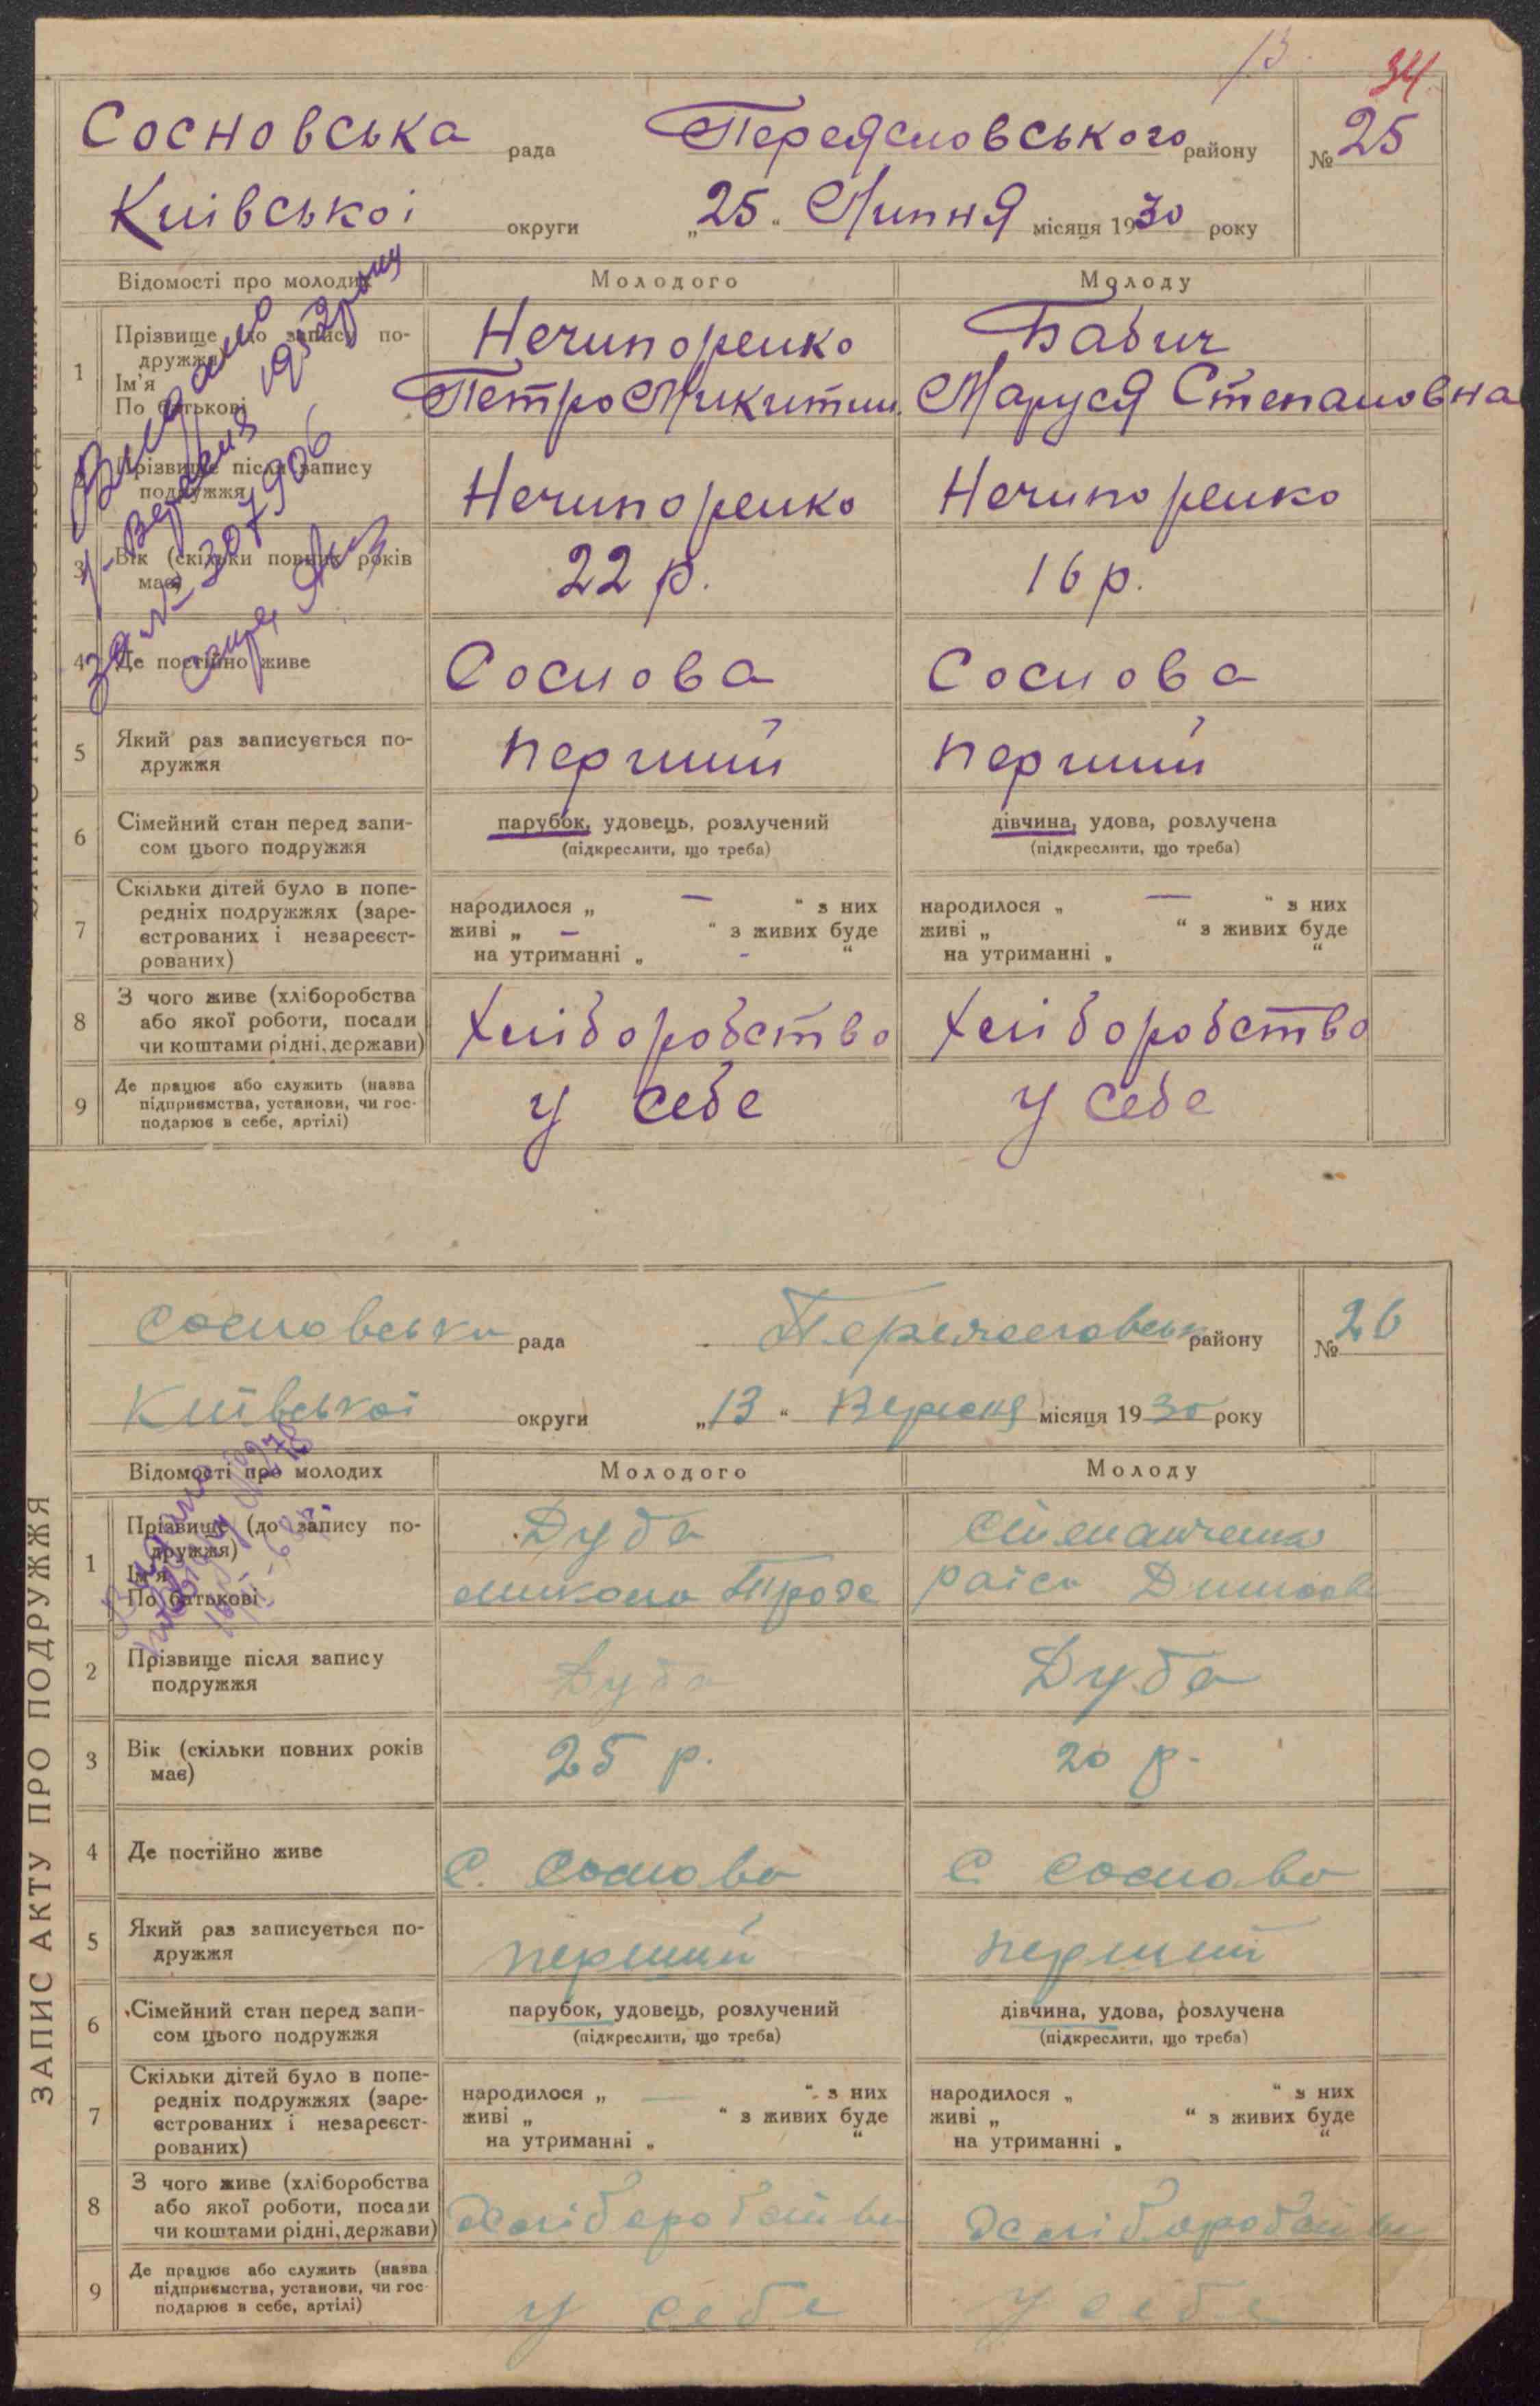 13.
34
Сосновська рада Переясловського району № 25
Київської округи „25“ Липня місяця 1930 року
Відомості про молодих Молодого Молоду
1 Прізвище до запису подружжя Нечипоренко Бабич
Ім’я
По батькові Петро Микитин Маруся Степановна
Прізвище після запису
подружжя Нечипоренко Нечипоренко
3 Вік (скільки повних років
має) 22 р. 16 р.
4 Де постійно живе Соснова Соснова
5 Який раз записується по-
дружжя перший перший
6 Сімейний стан перед запи-
сом цього подружжя парубок, удовець, розлучений дівчина, удова, розлучена
(підкреслити, що треба) (підкреслити, що треба)
7 Скільки дітей було в попе-
редніх подружжях (заре-
єстрованих і незареєст-
рованих)
народилося „ — “ з них народилося „ — “ з них
живі „ — “ з живих буде живі „ “ з живих буде
на утриманні „ - “ на утриманні „ “
8 З чого живе (хліборобства
або якої роботи, посади
чи коштами рідні, держави) Хліборобство Хліборобство
9 Де працює або служить (назва
підприємства, установи, чи гос-
подарює в себе, артілі) у себе у себе
Видано
за № 307906
ЗАПИС АКТУ ПРО ПОДРУЖЖЯ
Сосновська рада Переясловськ району № 26
Київської округи „13“ Вересня місяця 1930 року
Відомості про молодих Молодого Молоду
1 Прізвище (до запису по-
дружжя) Дуба
Ім’я
По батькові микола раїса
2 Прізвище після запису
подружжя Дуба Дуба
3 Вік (скільки повних років
має) 25 р. 20 р.
4 Де постійно живе С. Соснова С. Соснова
5 Який раз записується по-
дружжя перший перший
6 Сімейний стан перед запи-
сом цього подружжя парубок, удовець, розлучений дівчина, удова, розлучена
(підкреслити, що треба) (підкреслити, що треба)
7 Скільки дітей було в попе-
редніх подружжях (заре-
єстрованих і незареєст-
рованих)
народилося „ — “ з них народилося „ “ з них
живі „ “ з живих буде живі „ “ з живих буде
на утриманні „ “ на утриманні „ “
8 З чого живе (хліборобства
або якої роботи, посади
чи коштами рідні, держави) Хліборобство Хліборобство
9 Де працює або служить (назва
підприємства, установи, чи гос-
подарює в себе, артілі) у себе у себе